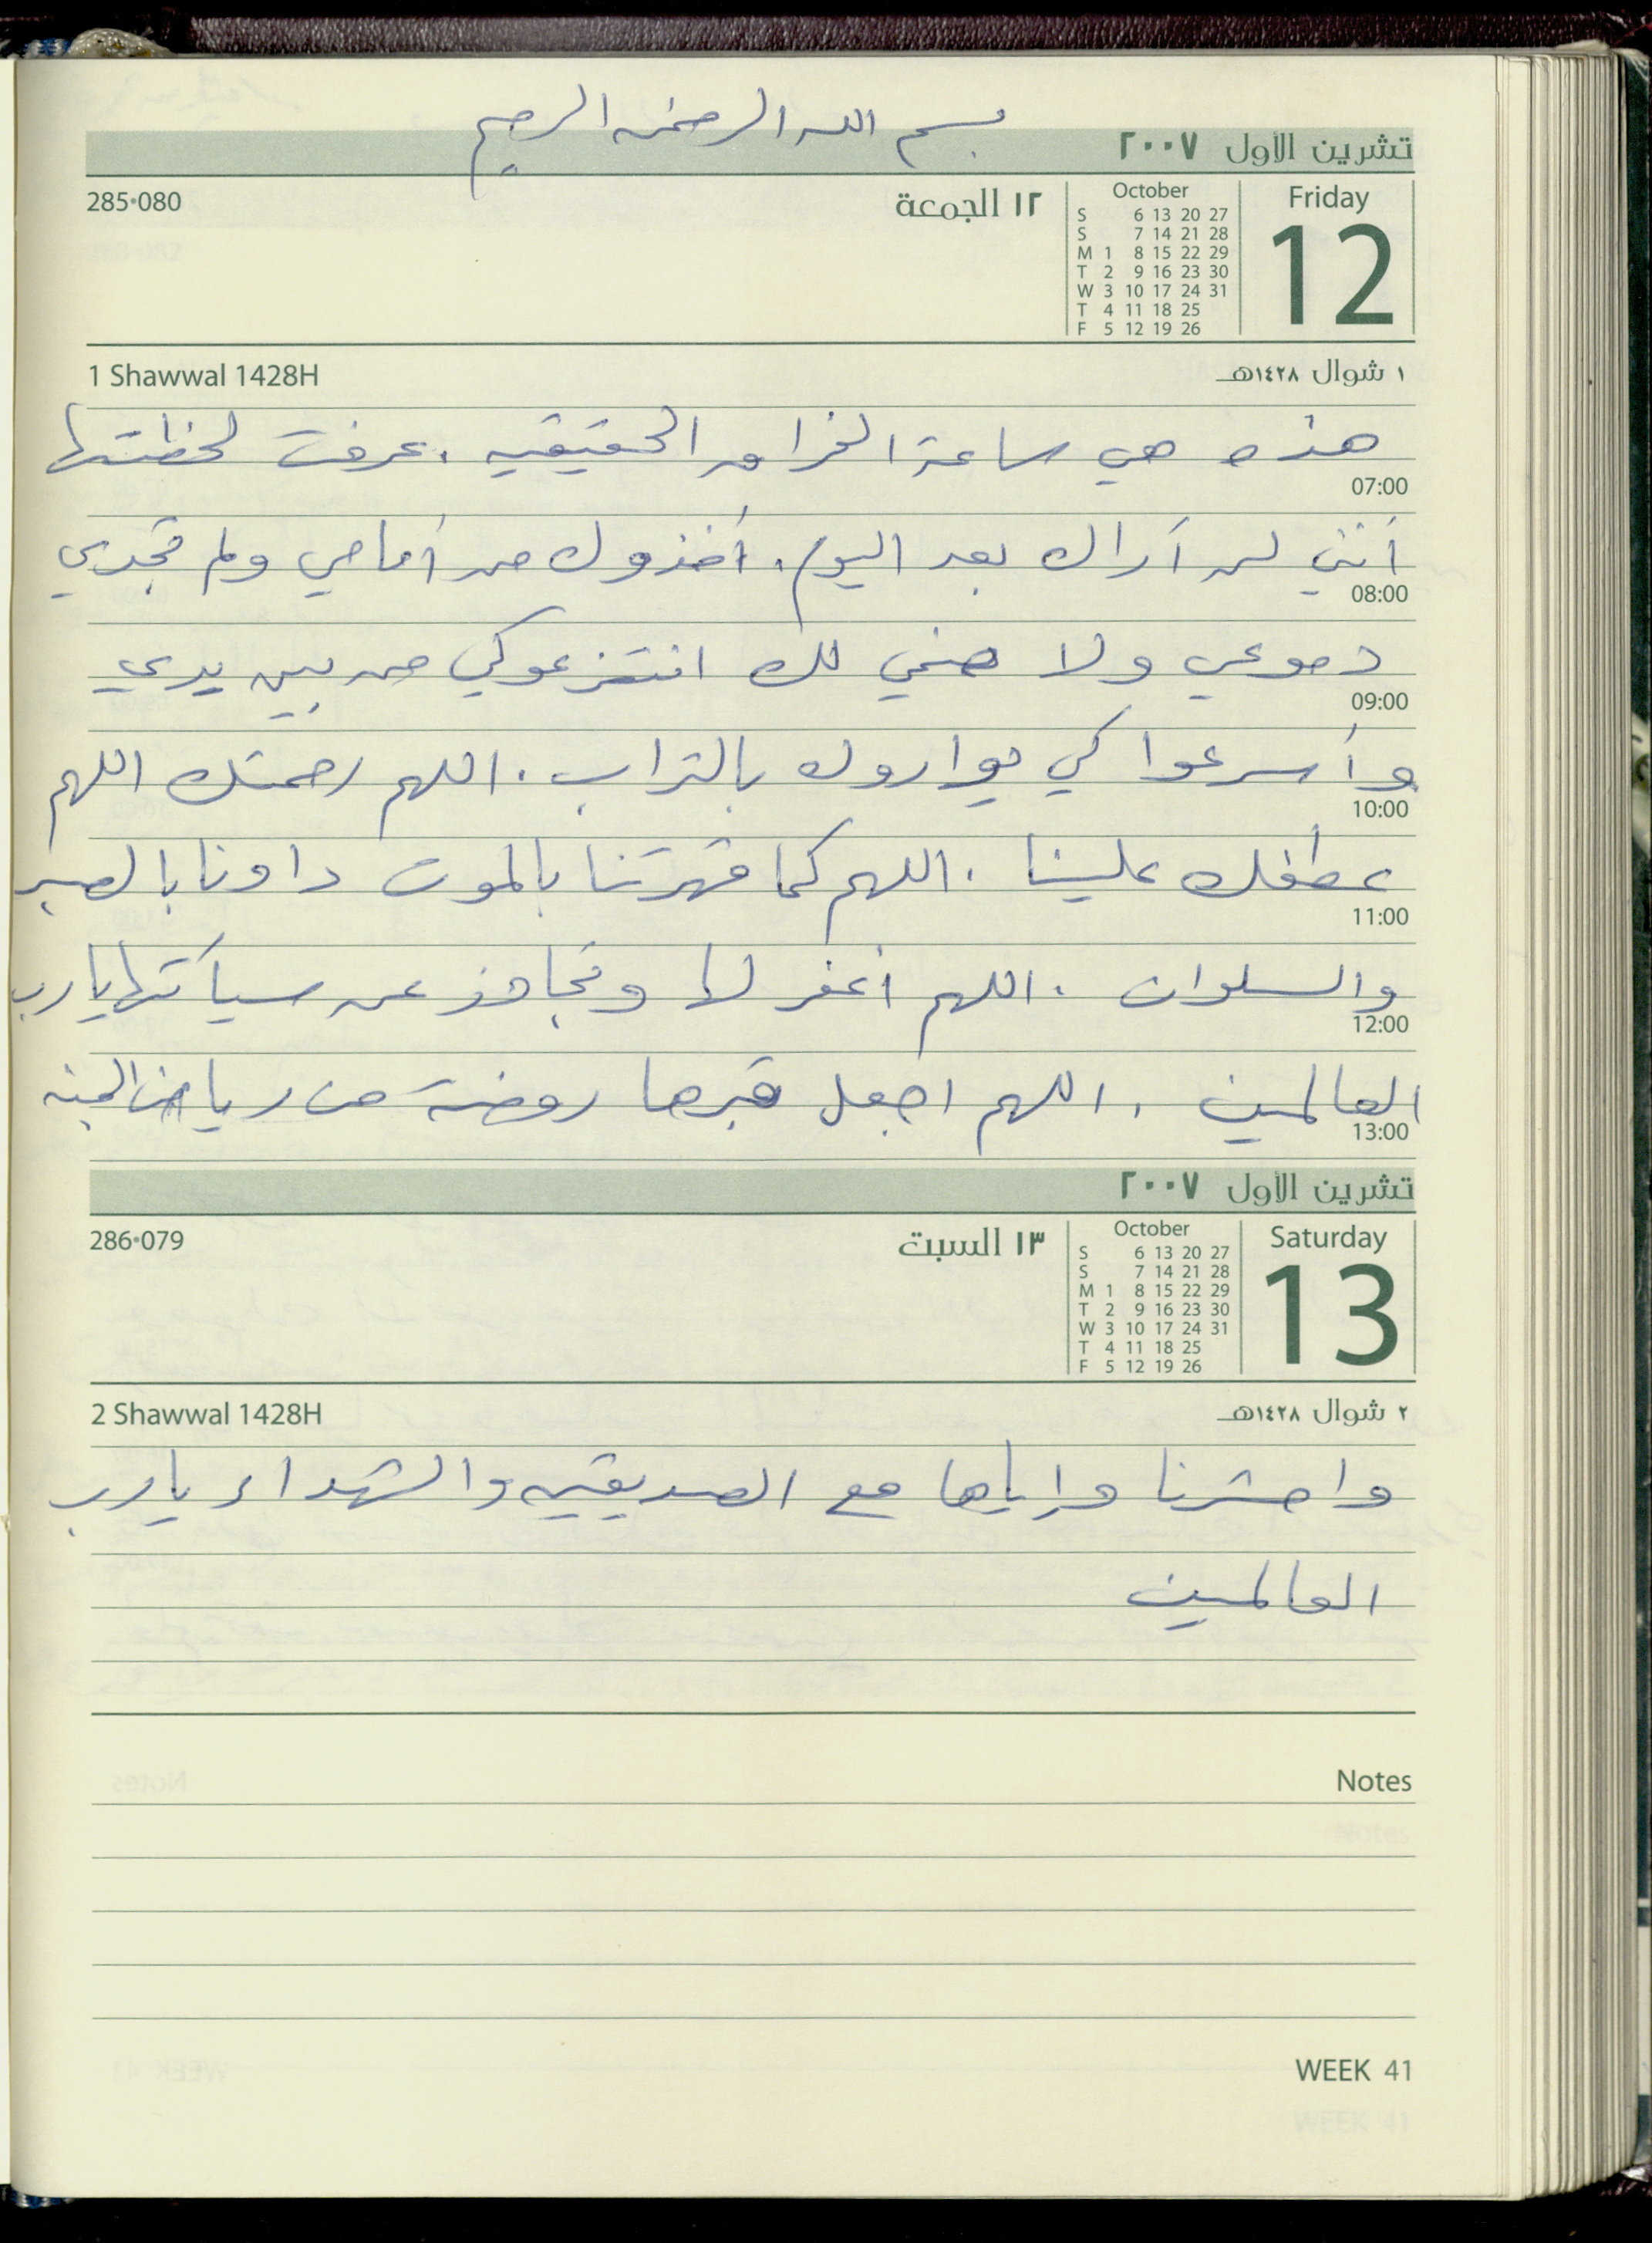 بسم الله الرحمن الرحيم
تشرين الأول ٢٠٠٧
285•080
١٢ الجمعة
October
S 6 13 20 27
S 7 14 21 28
M 1 8 15 22 29
T 2 9 16 23 30
W 3 10 17 24 31
T 4 11 18 25
F 5 12 19 26
Friday
12
1 Shawwal 1428H
١ شوال ١٤٢٨هـ
هذه هي ساعة الفراق الحقيقيه . عرفت لحظتها
07:00
أنني لن أراك بعد اليوم . أخذوك من أمامي ولم تجدي
08:00
دموعي ولا ضمي لك انتزعوكي من بين يدي
09:00
وأسرعوا كي يواروك بالتراب . اللهم رحمتك اللهم
10:00
عطفك علينا . اللهم كما قهرتنا بالموت داونا بالصبر
11:00
والسلوان . اللهم أغفر لها وتجاوز عن سيأتها يا رب
12:00
العالمين . اللهم اجعل قبرها روضة من رياض الجنه
13:00
تشرين الأول ٢٠٠٧
286•079
١٣ السبت
October
S 6 13 20 27
S 7 14 21 28
M 1 8 15 22 29
T 2 9 16 23 30
W 3 10 17 24 31
T 4 11 18 25
F 5 12 19 26
Saturday
13
2 Shawwal 1428H
٢ شوال ١٤٢٨هـ
واحشرنا وإياها مع الصديقين والشهداء يا رب
العالمين
Notes
WEEK 41